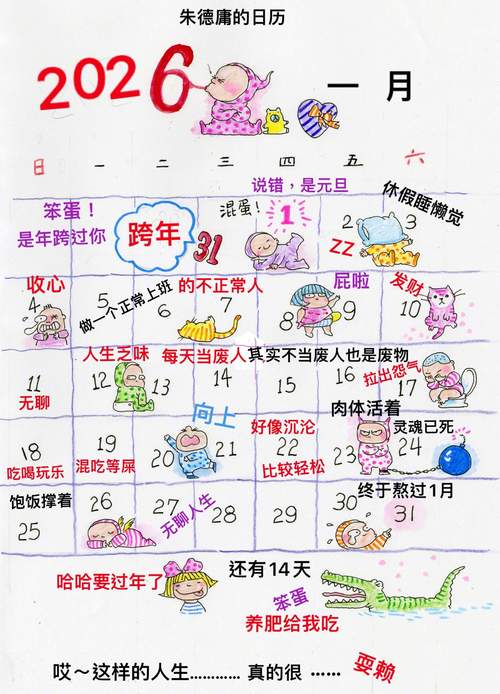 朱德庸的日历
2026
一 月
日 一 二 三 四 五 六
笨蛋！
是年跨过你
跨年
31
混蛋！
说错，是元旦
1
2
3
休假睡懒觉
ZZ
收心
4
5
做一个正常上班
6
的不正常人
7
8
屁啦
9
发财
10
人生乏味
每天当废人其实不当废人也是废物
11
无聊
12
13
14
15
16
拉出怨气
17
18
吃喝玩乐
19
混吃等屎
20
向上
21
好像沉沦
22
比较轻松
肉体活着
23
灵魂已死
24
饱饭撑着
25
26
27
无聊人生
28
29
30
终于熬过1月
31
哈哈要过年了
还有14天
笨蛋
养肥给我吃
哎～这样的人生………… 真的很 …… 耍赖